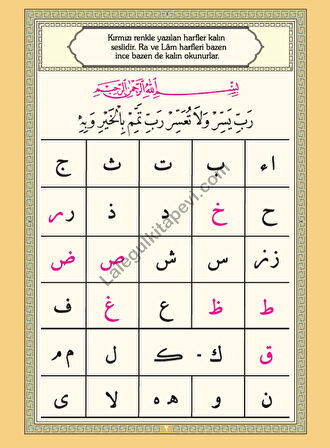 Kırmızı renkle yazılan harfler kalın
seslidir. Ra ve Lâm harfleri bazen
ince bazen de kalın okunurlar.
بِسْمِ اللّٰهِ الرَّحْمٰنِ الرَّحِيمِ
رَبِّ يَسِّرْ وَلَا تُعَسِّرْ رَبِّ تَمِّمْ بِالْخَيْرِ وَبِهِ
ا ء ب ت ث ج
ح خ د ذ ر ر
ز ز س ش ص ض
ط ظ ع غ ف
ق ك - ڪ ل م م
ن و ه ه لا ى
Lalegulkitapevi.com